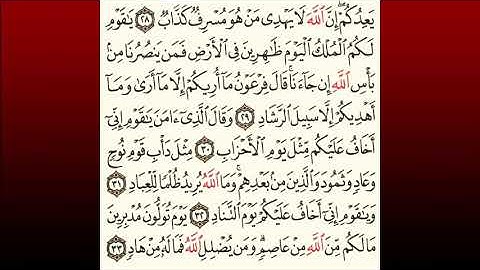 يَعِدُكُمْ إِنَّ ٱللَّهَ لَا يَهْدِى مَنْ هُوَ مُسْرِفٌ كَذَّابٌ ٢٨ يَٰقَوْمِ
لَكُمُ ٱلْمُلْكُ ٱلْيَوْمَ ظَٰهِرِينَ فِى ٱلْأَرْضِ فَمَن يَنصُرُنَا مِنۢ
بَأْسِ ٱللَّهِ إِن جَآءَنَا قَالَ فِرْعَوْنُ مَآ أُرِيكُمْ إِلَّا مَآ أَرَىٰ وَمَآ
أَهْدِيكُمْ إِلَّا سَبِيلَ ٱلرَّشَادِ ٢٩ وَقَالَ ٱلَّذِىٓ ءَامَنَ يَٰقَوْمِ إِنِّىٓ
أَخَافُ عَلَيْكُم مِّثْلَ يَوْمِ ٱلْأَحْزَابِ ٣٠ مِثْلَ دَأْبِ قَوْمِ نُوحٍ
وَعَادٍ وَثَمُودَ وَٱلَّذِينَ مِنۢ بَعْدِهِمْ وَمَا ٱللَّهُ يُرِيدُ ظُلْمًا لِّلْعِبَادِ ٣١
وَيَٰقَوْمِ إِنِّىٓ أَخَافُ عَلَيْكُمْ يَوْمَ ٱلتَّنَادِ ٣٢ يَوْمَ تُوَلُّونَ مُدْبِرِينَ
مَا لَكُم مِّنَ ٱللَّهِ مِنْ عَاصِمٍ وَمَن يُضْلِلِ ٱللَّهُ فَمَا لَهُۥ مِنْ هَادٍ ٣٣